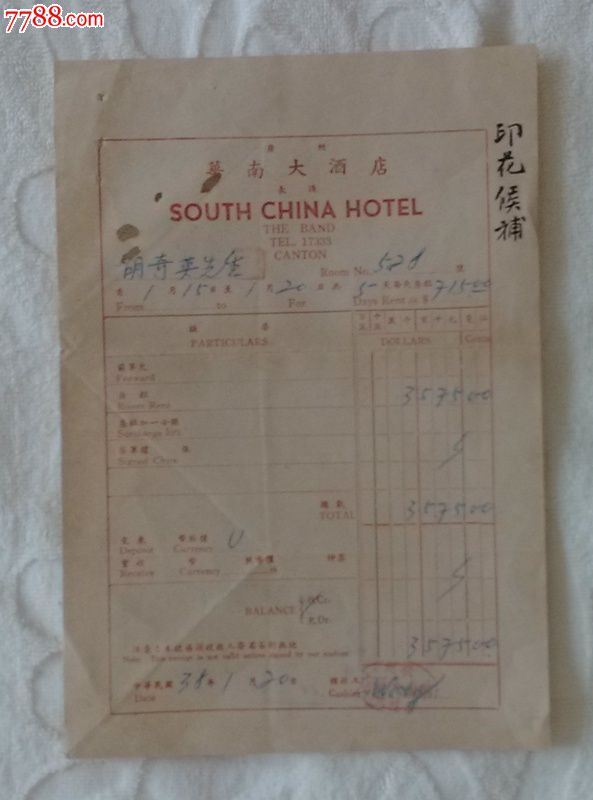 7788.com
印花候補
廣州
華南大酒店
長堤
SOUTH CHINA HOTEL
THE BAND
TEL. 17333
CANTON
胡奇英先生 Room No. 528 號
1月15日至1月20日共5天每天房租 71500
From to For Days Rent at $
PARTICULARS DOLLARS Cents
前單欠
Forward
房租 357500
Room Rent
Signed Chits
總數
TOTAL 357500
定來 U
Deposit Currency
實收
Receive Currency
BALANCE Cr.
Dr.
357500
Note: This receipt is not valid unless signed by our cashier
中華民國38年1月20日
Date Cashier